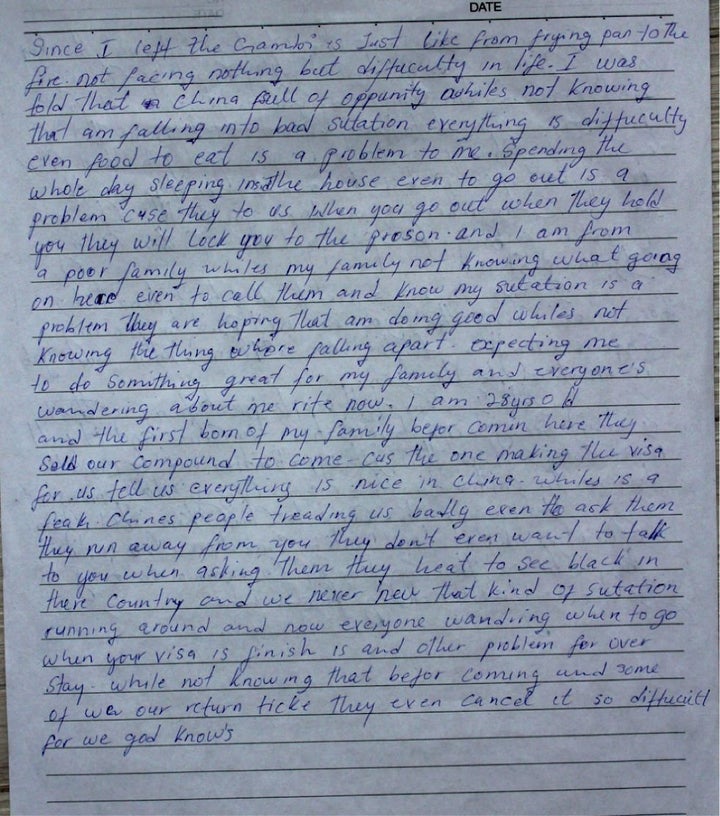 DATE
Since I left The Gambi is Just like from frying pan to the
fire. not facing nothing but diffuculty in life. I was
told that a China full of oppunity whiles not knowing
that am falling into bad sutation everything is diffuculty
even food to eat is a problem to me. Spending the
whole day sleeping insithe house even to go out is a
problem cuse they to us. When you go out when they hold
you they will lock you to the prison. and I am from
a poor family whiles my family not knowing what going
on here even to call them and know my sutation is a
problem they are hoping that am doing good whiles not
knowing the thing whore falling apart. expecting me
to do somithing great for my family and everyone's
wandering about me rite now. I am 28yrs old
and the first born of my family befor comin here they
sold our compound to come - cus the one making the visa
for us tell us everything is nice in china - whiles is a
feak. Chines people treading us badly even to ask them
they run away from you they don't even want to talk
to you when asking them they heat to see black in
there country and we never new that kind of sutation
running around and now everyone wandring when to go
when your visa is finish is and other problem for over
stay. while not knowing that befor coming and some
of we our return ticke they even cancel it so diffucult
for we god know's